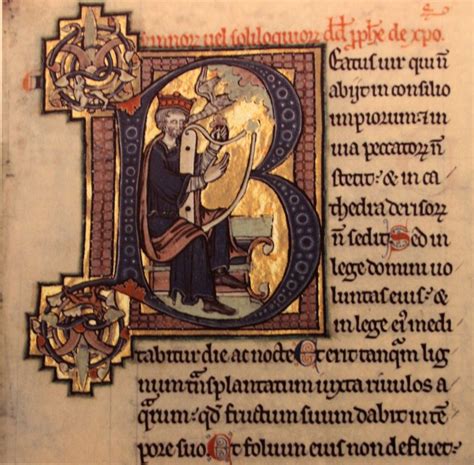 uel soliloquioꝝ dd̄ pph̄e de xp̄o.
BEatus uir qui n̄
abijt in consilio
impiorum: & in
uia peccatoꝝ n̄
stetit: & in ca
thedra derisoꝝ
n̄ sedit. Sed in
lege domini uo
luntas eius: &
in lege ei' medi
tabitur die ac nocte. Et erit tanq̄m lig
num tn̄splantatum iuxta riuulos a
q̄rum: qd̄ fructum suum dabit in tē
pore suo. Et folium eius non defluet: